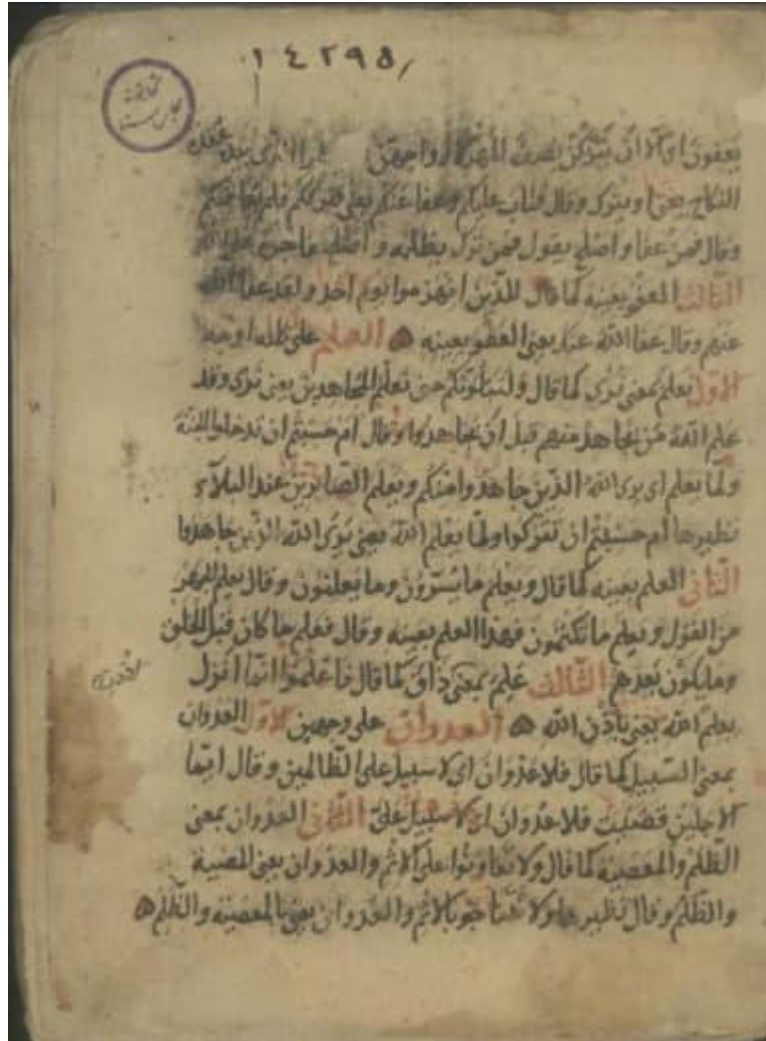 ١٤٢٩٥
كتابخانه
مجلس سنا
يعفون او كلا ان يتركن نصف المهر لازواجهن الذى بيده عقدة
النكاح يعنى او يترك وقال فتاب عليكم وعفا عنكم يعنى فلم يعاقبكم
وقال فمن عفا واصلح يقول فمن ترك مظلمه واصلح فاجره على الله
الثالث العفو بعينه كما قال للذين انهزموا يوم احد ولقد عفا الله
عنهم وقال عفا الله عنك يعنى العفو بعينه العلم على ثلثه اوجه
الاول يعلم بمعنى يرى كما قال ولنبلونكم حتى نعلم المجاهدين يعنى نرى وقد
علم الله من يجاهد منهم قبل ان يجاهدوا وقال ام حسبتم ان تدخلوا الجنة
ولما يعلم اى يرى الله الذين جاهدوا منكم ويعلم الصابرين عند البلاء
نظيرها ام حسبتم ان تتركوا ولما يعلم الله يعنى يرى الله الذين جاهدوا
الثانى العلم بعينه كما قال ويعلم ما يسرون وما يعلنون وقال يعلم الجهر
من القول ويعلم ما تكتمون فهذا العلم بعينه وقال فعلم ما كان قبل الخلق
وما يكون بعدهم الثالث علم بمعنى ذاق كما قال فاعلموا انما انزل
بعلم الله يعنى باذن الله العدوان على وجهين الاول العدوان
بمعنى السبيل كما قال فلا عدوان اى لا سبيل على الظالمين وقال ايما
الاجلين قضيت فلا عدوان اى لا سبيل على الثانى العدوان بمعنى
الظلم والمعصية كما قال ولا تعاونوا على الاثم والعدوان يعنى المعصية
والظلم وقال نظيرها ولا تتناجوا بالاثم والعدوان يعنى بالمعصيه والظلم